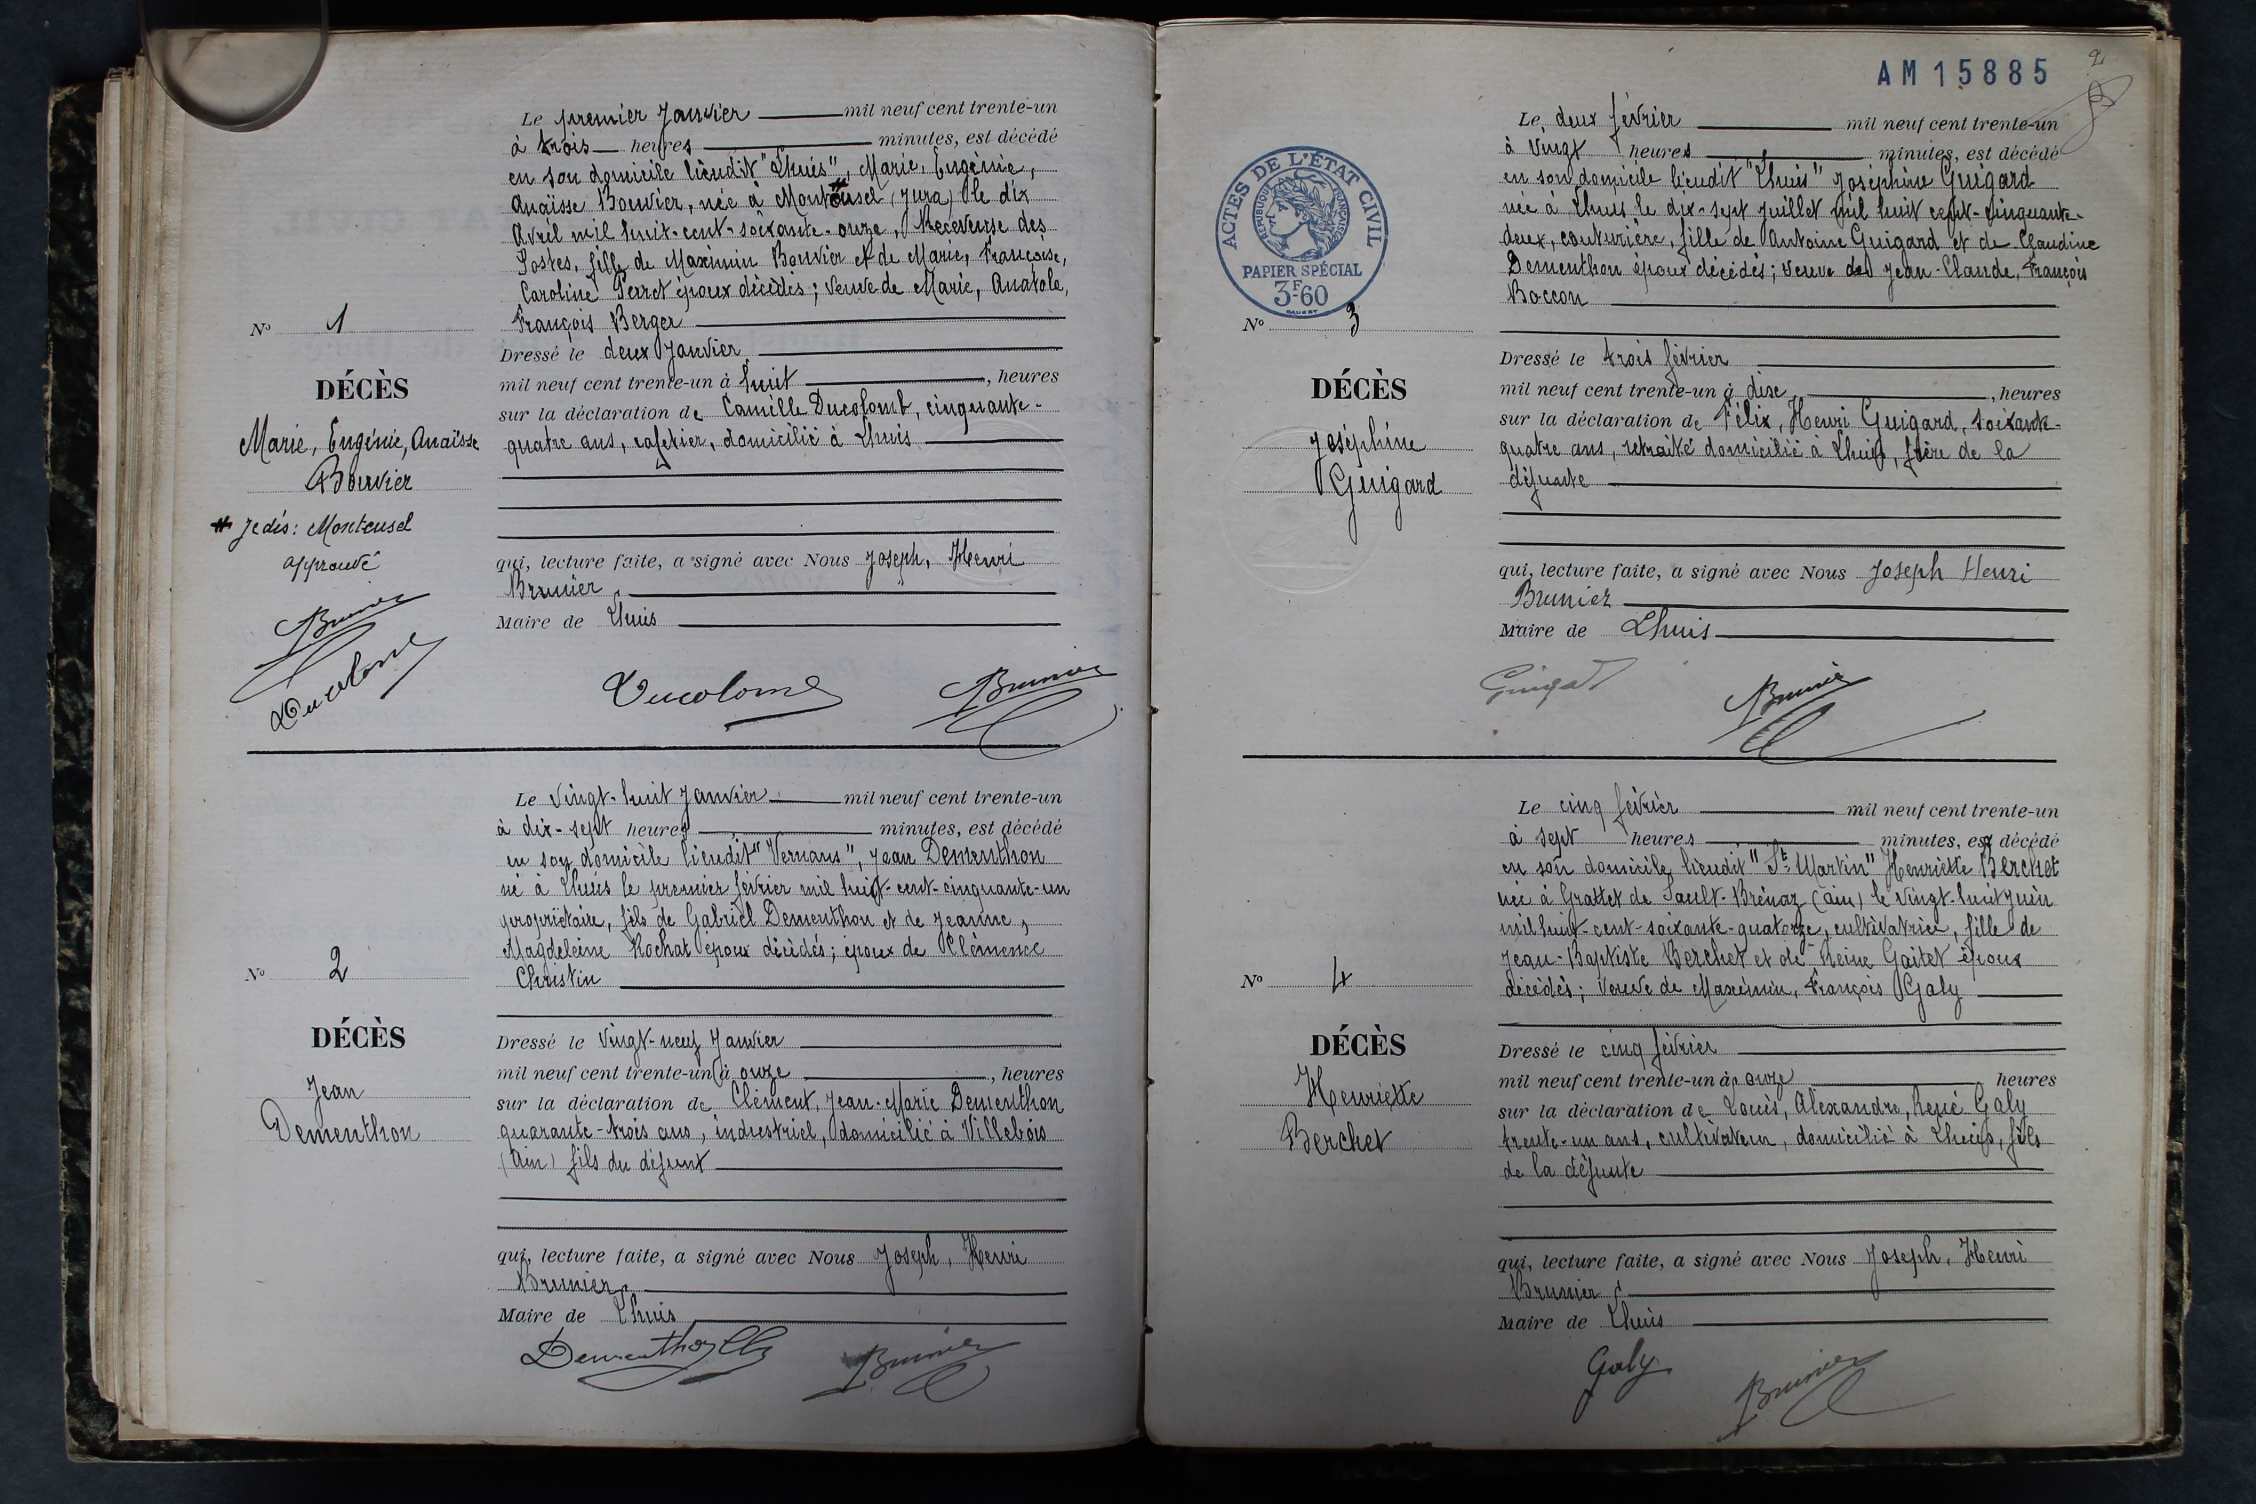 Le premier Janvier mil neuf cent trente-un
à trois heures minutes, est décédé
en son domicile lieudit "Lhuis", Marie, Eugénie,
Anaïsse Bouvier, née à Monteusel (Jura) le dix
Avril mil huit-cent-soixante-onze, Receveuse des
Postes, fille de Maximin Bouvier et de Marie, Françoise,
Caroline Perret époux décédés; veuve de Marie, Anatole,
François Berger
N° 1
Dressé le deux Janvier
mil neuf cent trente-un à huit , heures
DÉCÈS
sur la déclaration de Camille Ducolomb, cinquante-
Marie, Eugénie, Anaïsse
quatre ans, cafetier, domicilié à Lhuis
Bouvier
Je dis: Monteusel
approuvé
qui, lecture faite, a signé avec Nous Joseph, Henri
Brunier
Maire de Lhuis
Brunier
Ducolomb
Ducolomb
Brunier
Le vingt-huit Janvier mil neuf cent trente-un
à dix-sept heures minutes, est décédé
en son domicile lieudit "Vernans", Jean Dementhon
né à Lhuis le premier février mil huit-cent-cinquante-un
propriétaire, fils de Gabriel Dementhon et de Jeanne,
Magdeleine Rochat époux décédés; époux de Clémence
N° 2
Christin
DÉCÈS
Dressé le vingt-neuf Janvier
mil neuf cent trente-un à onze , heures
Jean
sur la déclaration de Clément, Jean-Marie Dementhon
Dementhon
quarante-trois ans, industriel, domicilié à Villebois
(Ain) fils du défunt
qui, lecture faite, a signé avec Nous Joseph, Henri
Brunier
Maire de Lhuis
Dementhon
Brunier
AM 15885
2
Le deux février mil neuf cent trente-un
à vingt heures minutes, est décédé
en son domicile lieudit "Lhuis" Joséphine Guigard
née à Lhuis le dix-sept juillet mil huit cent-cinquante-
deux, couturière, fille de Antoine Guigard et de Claudine
Dementhon époux décédés; veuve de Jean-Claude, François
Boccon
ACTES DE L'ÉTAT CIVIL
RÉPUBLIQUE FRANÇAISE
PAPIER SPÉCIAL
3F-60
N° 3
Dressé le trois février
DÉCÈS
mil neuf cent trente-un à dix , heures
sur la déclaration de Félix, Henri Guigard, soixante-
Joséphine
quatre ans, retraité domicilié à Lhuis, frère de la
Guigard
défunte
qui, lecture faite, a signé avec Nous Joseph Henri
Brunier
Maire de Lhuis
Guigard
Brunier
Le cinq février mil neuf cent trente-un
à sept heures minutes, est décédé
en son domicile lieudit "St Martin" Henriette Berchet
née à Grattet de Sault-Brénaz (Ain) le vingt-huit juin
mil huit-cent-soixante-quatorze, cultivatrice, fille de
Jean-Baptiste Berchet et de Reine Gaitet époux
N° 4
décédés; veuve de Maximin, François Galy
DÉCÈS
Dressé le cinq février
Henriette
mil neuf cent trente-un à onze heures
sur la déclaration de Louis, Alexandre, René Galy
Berchet
trente-un ans, cultivateur, domicilié à Lhuis, fils
de la défunte
qui, lecture faite, a signé avec Nous Joseph, Henri
Brunier
Maire de Lhuis
Galy
Brunier